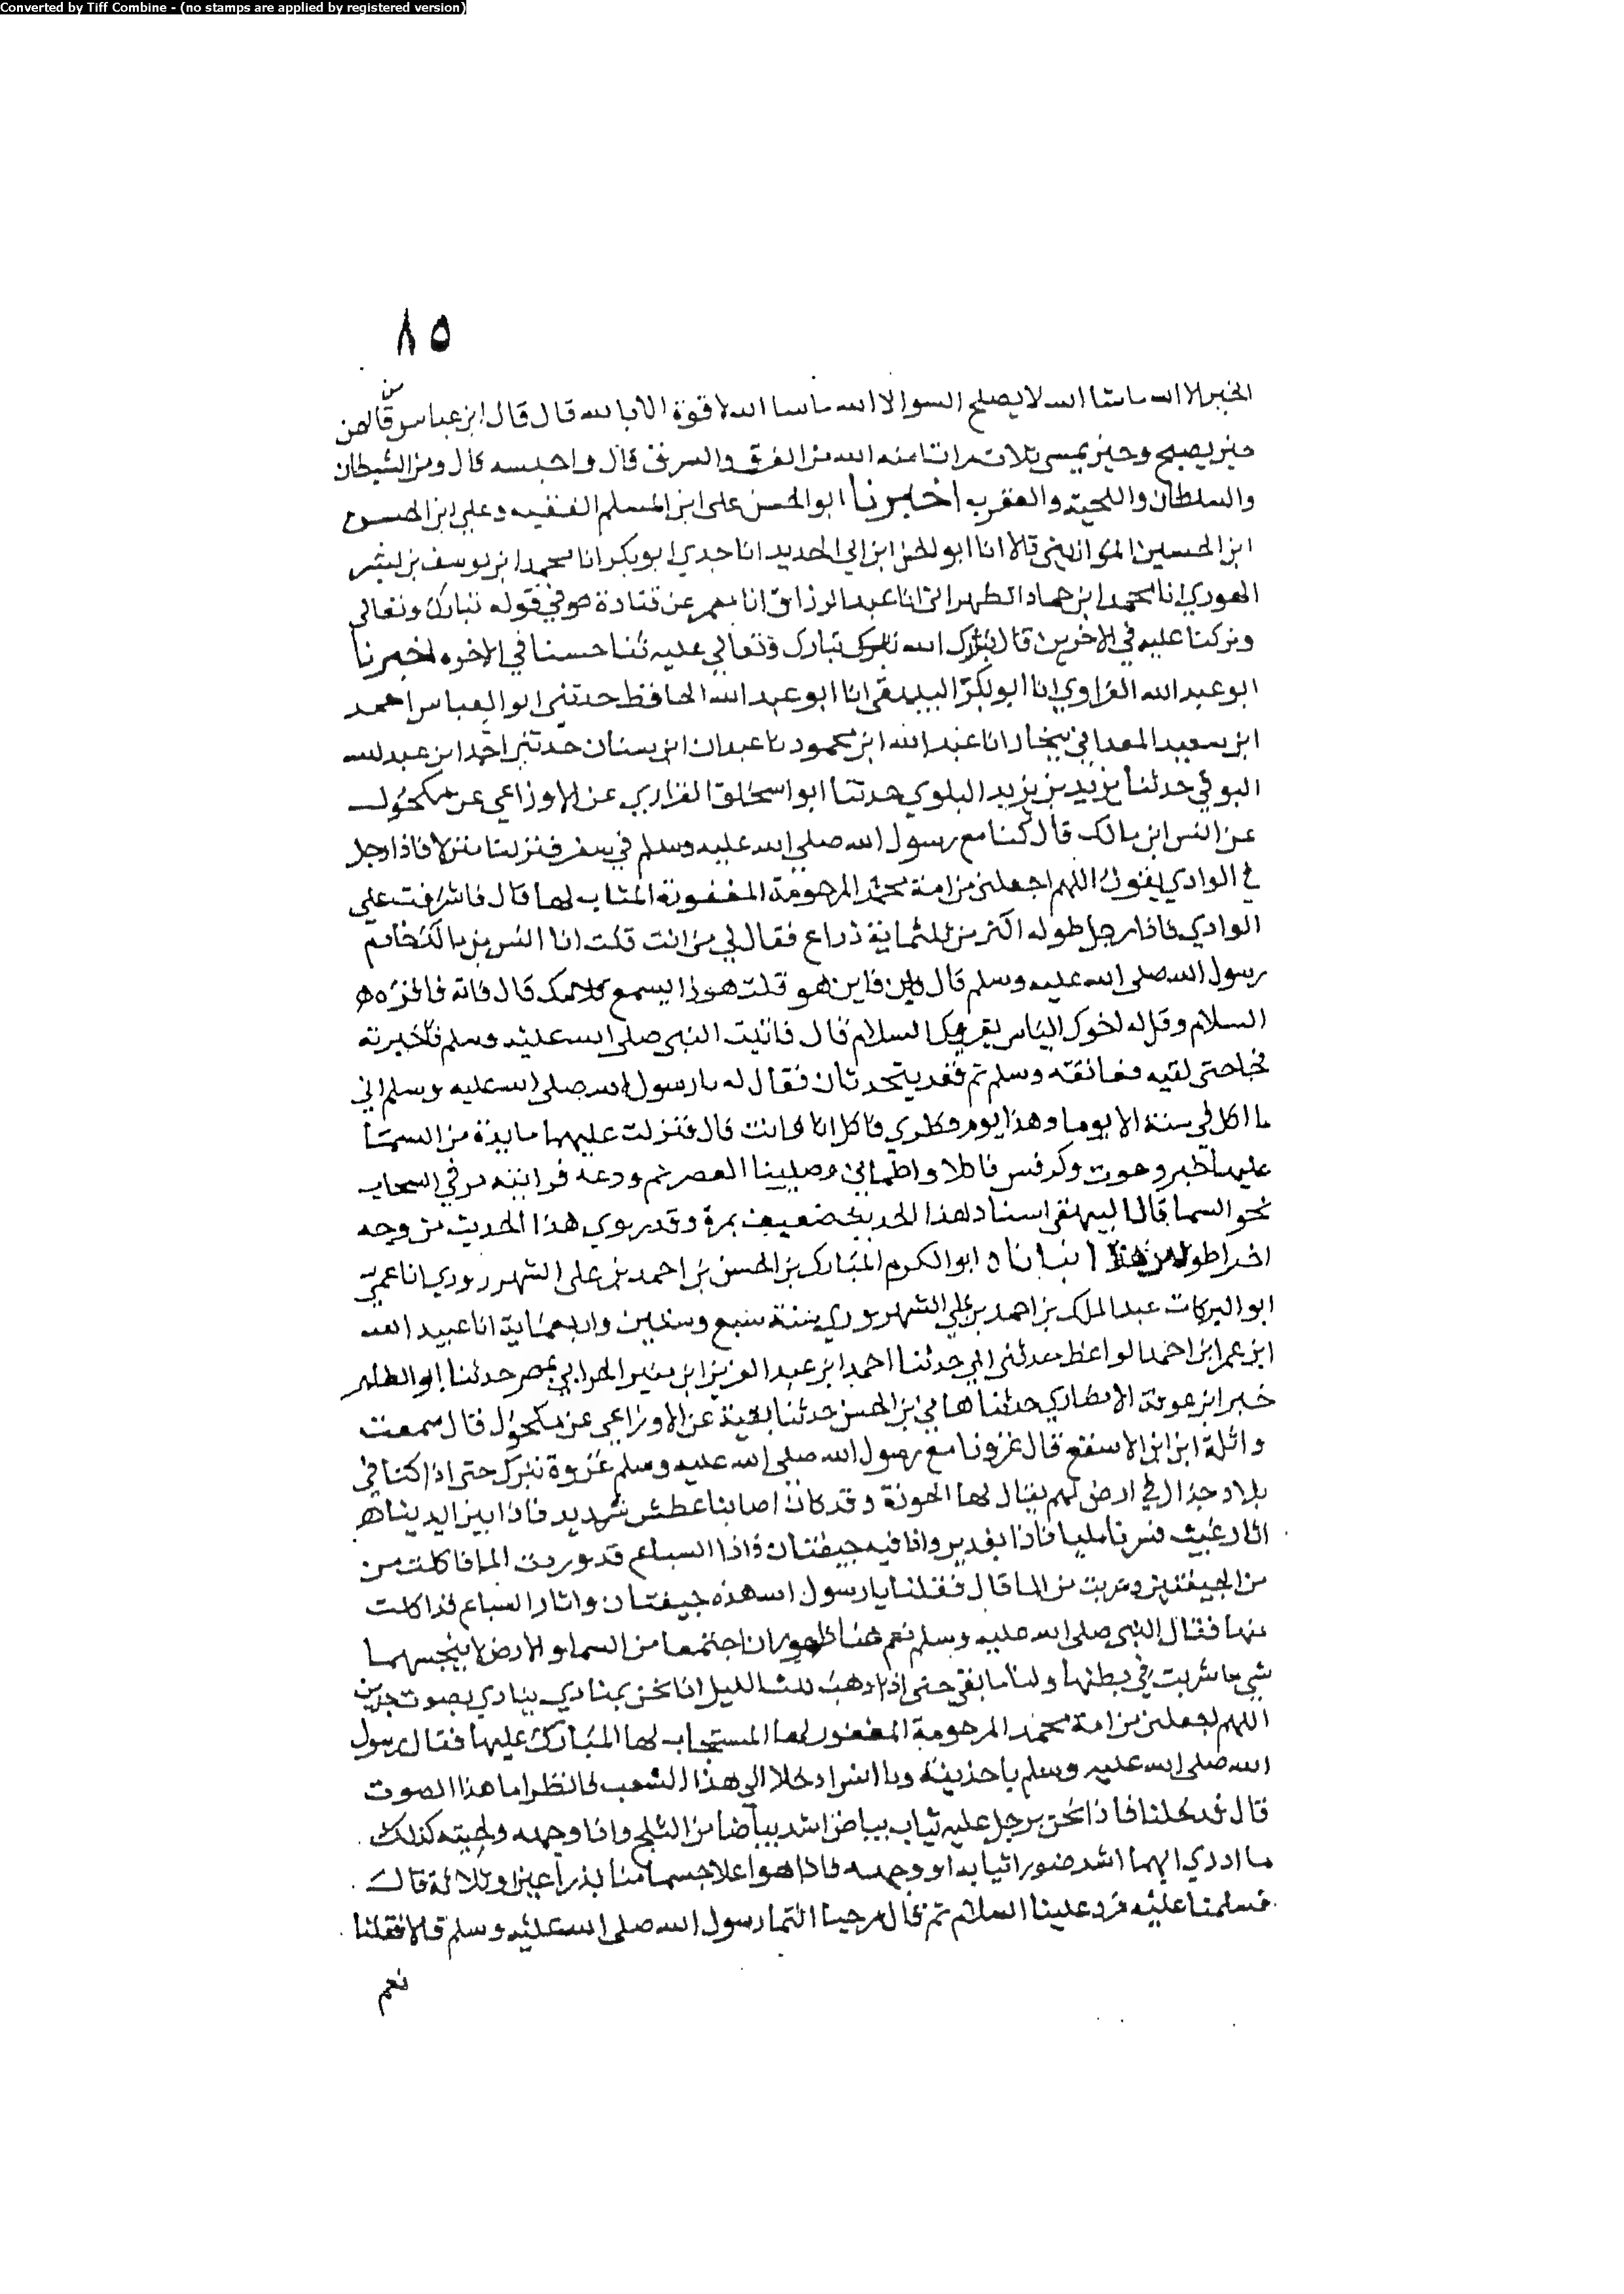 Converted by Tiff Combine - (no stamps are applied by registered version)
٨٥
الخير الا الله ماشا الله لا يصلح السوا الا الله ماسا الله لا قوة الا بالله قال قال ابن عباس من قالهن
حين يصبح وحين يمسي ثلاث مرات امنه الله من الغرق والسرق قال واحبسه قال ومن الشيطان
والسلطان والحية والعقرب اخبرنا ابو الحسن على ابن المسلم الفقيه وعلي ابن الحسن
ابن الحسين الموازيني قالا انا ابو الحسن ابن ابي الحديد انا جدي ابو بكر انا محمد ابن يوسف بن بشر
الهوري انا محمد ابن حماد الطهراني انا عبد الرزاق انا معمر عن قتادة في قوله تبارك وتعالى
وتركنا عليه في الاخرين قال ترك الله تبارك وتعالي عليه ثنا حسنا في الاخره اخبرنا
ابو عبد الله الفراوي انا ابو بكر البيهقي انا ابو عبد الله الحافظ حدثني ابو العباس احمد
ابن سعيد المعداني ببخارا انا عبد الله ابن محمود نا عبدان ابن سنان حدثني احمد ابن عبد الله
البرقي حدثنا يزيد بن يزيد البلوي حدثنا ابو اسحاق الفزاري عن الاوزاعي عن مكحول
عن انس ابن مالك قال كنا مع رسول الله صلي الله عليه وسلم في سفر فنزلنا منزلا فاذا رجل
في الوادي يقول اللهم اجعلني من امة محمد المرحومة المغفورة المثاب لها قال فاشرفت علي
الوادي فاذا رجل طوله اكثر من ثلثماية ذراع فقال لي من انت قلت انا انس بن مالك خادم
رسول الله صلى الله عليه وسلم قال فاين هو قلت هوذا يسمع كلامك قال فاته فاقره
السلام وقل له اخوك الياس يقريك السلام قال فاتيت النبي صلى الله عليه وسلم فاخبرته
فجا حتى لقيه فعانقه وسلم ثم قعد يتحدثان فقال له يا رسول الله صلى الله عليه وسلم اني
ما اكل في سنة الا يوما وهذا يوم فطري فاكل انا وانت قال فنزلت عليهما مايدة من السما
عليها خبز وحوت وكرفس فاكلا واطعماني وصلينا العصر ثم ودعه فرايته مر في السحاب
نحو السما قال البيهقي اسناد هذا الحديث ضعيف بمرة وقد روي هذا الحديث من وجه
اخر اطول من هذا انبانا ابو الكرم المبارك بن الحسن بن احمد بن على الشهرزوري انا عمي
ابو البركات عبد الملك بن احمد بن علي الشهرزوري سنة سبع وستين واربعماية انا عبيد الله
ابن عمر ابن احمد الواعظ حدثني ابي حدثنا احمد ابن عبد العزيز ابن منير الحرابي بمصر حدثنا ابو الطاهر
خير ابن عرفة الانصاري حدثنا هاني بن الحسن حدثنا بقية عن الاوزاعي عن مكحول قال سمعت
واثلة ابن الاسقع قال غزونا مع رسول الله صلي الله عليه وسلم غزوة تبوك حتى اذا كنا في
بلاد جذام في ارض لهم يقال لها الحوزة وقد كان اصابنا عطش شديد فاذا بين ايدينا
اثار غيث فسرنا مليا فاذا بغدير واذا فيه جيفتان واذا السباع قد وردت الما فاكلت من
من الجيفتين وشربت من الما قال فقلنا يا رسول الله هذه جيفتان واثار السباع قد اكلت
منها فقال النبي صلى الله عليه وسلم نعم هما طهوران اجتمعا من السما والارض لا ينجسهما
شي ما شربت في بطنها ولنا ما بقي حتى اذا ذهب ثلث الليل اذا نحن بمنادي ينادي بصوت حزين
اللهم اجعلني من امة محمد المرحومة المغفور لها المستجاب لها المبارك عليها فقال رسول
الله صلى الله عليه وسلم يا حذيفة ويا انس ادخلا الي هذا الشعب فانظرا ما هذا الصوت
قال فدخلنا فاذا نحن برجل عليه ثياب بياض اشد بياضا من الثلج واذا وجهه ولحيته كذلك
ما ادري ايهما اشد ضورا ثيابه او وجهه فاذا هو اعلا جسما منا بذراعين او ثلاثة قال
فسلمنا عليه فرد علينا السلام ثم قال مرحبا انتما رسول الله صلى الله عليه وسلم قالا فقلنا
نعم